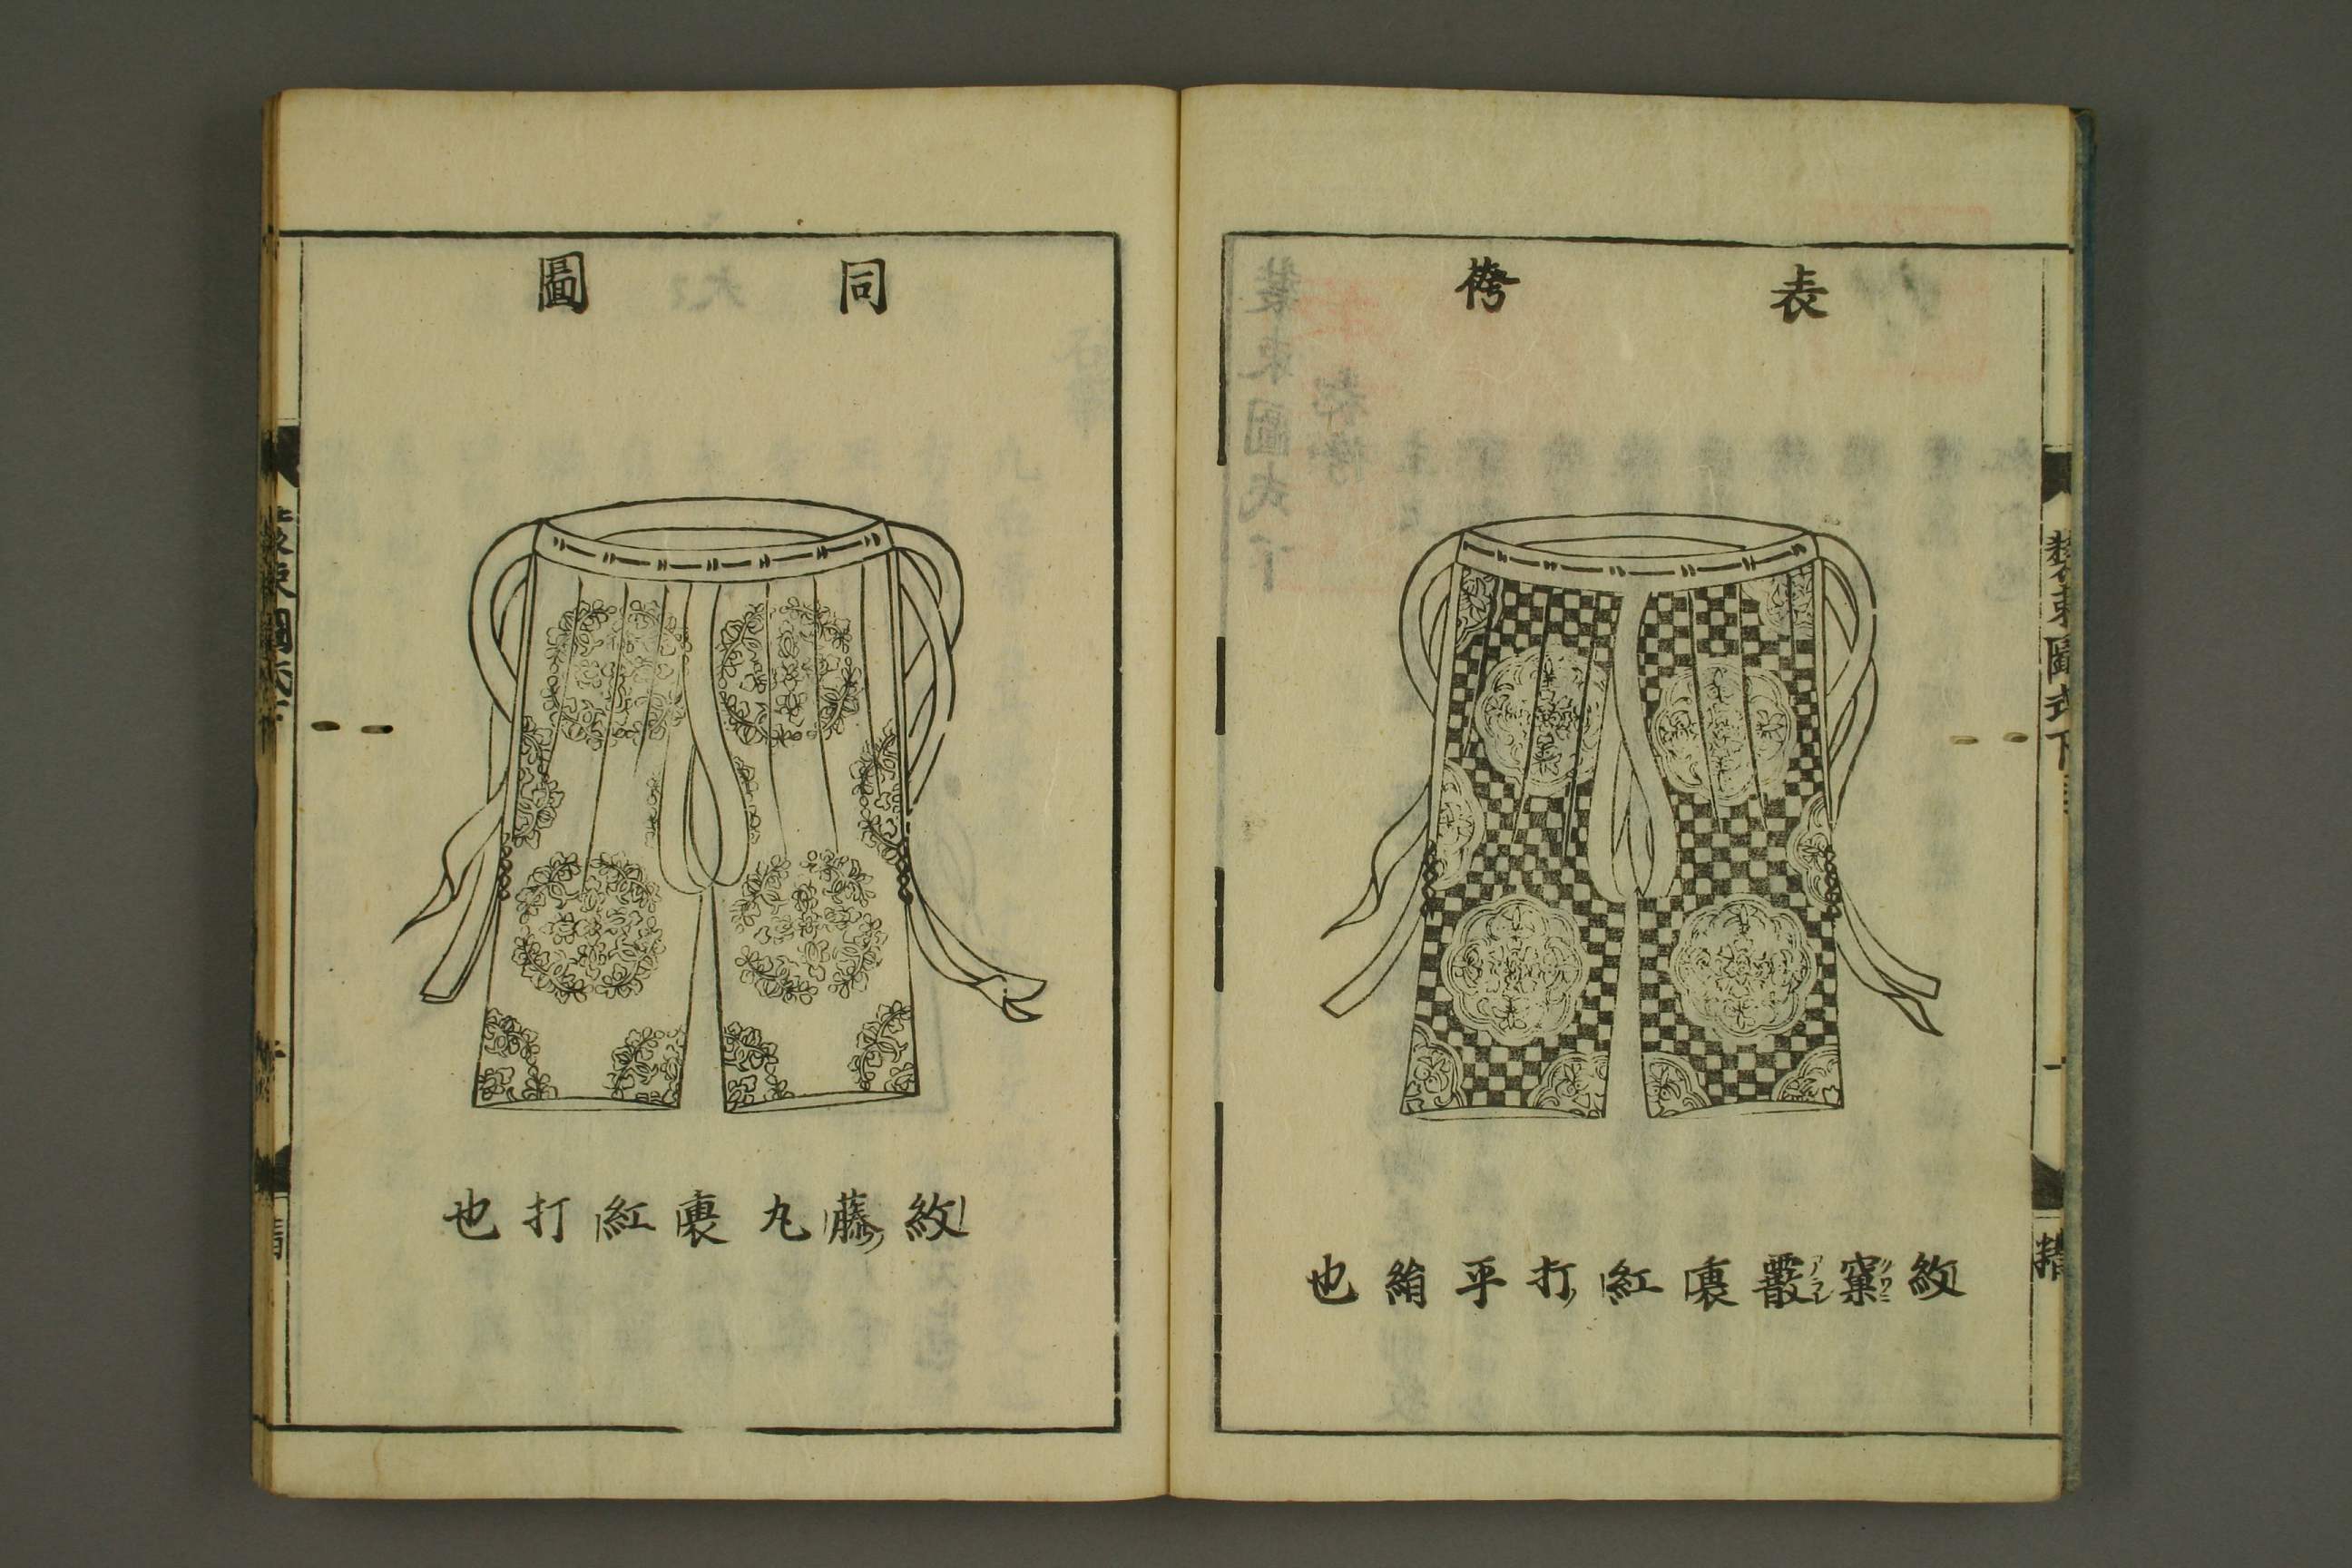 表袴
紋窠霰裏紅打平絹也
クワニ
アラレ
裝束圖式下
同圖
紋藤丸裏紅打也